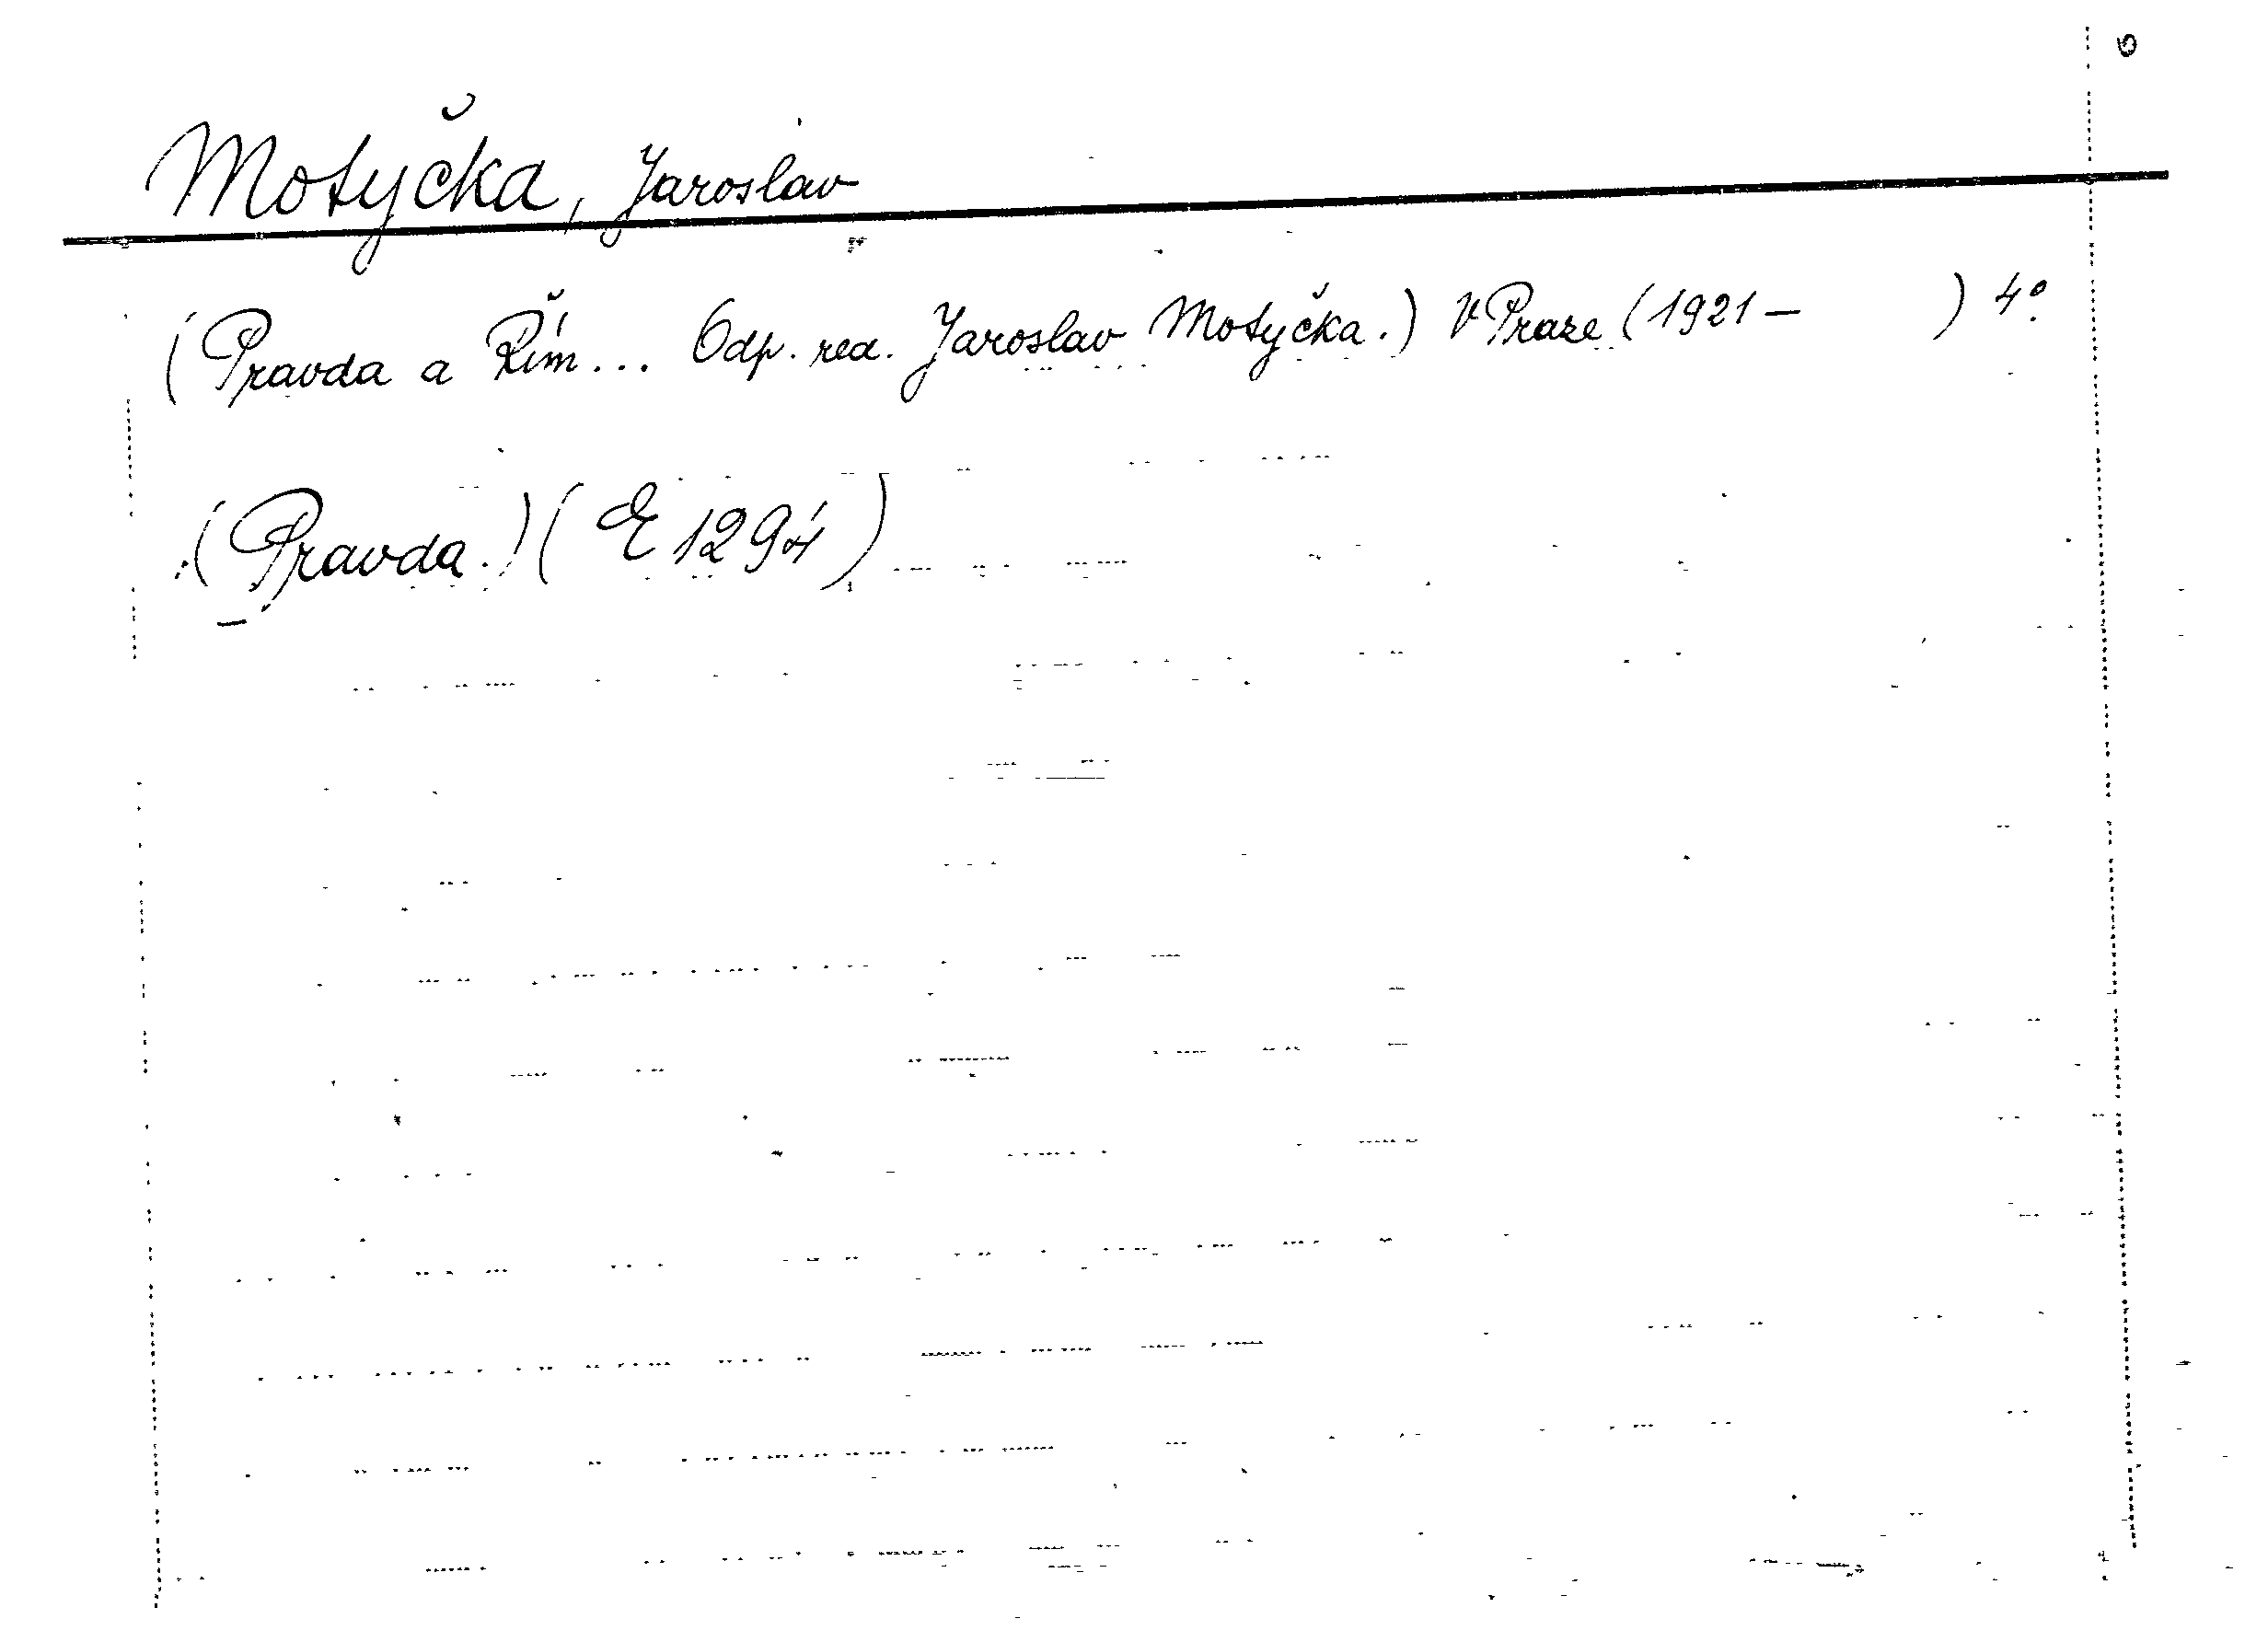 Motyčka, Jaroslav
(Pravda a Řím... Odp. red. Jaroslav Motyčka.) V Praze (1921 – ) 4°.
(Pravda.) (E 1294)